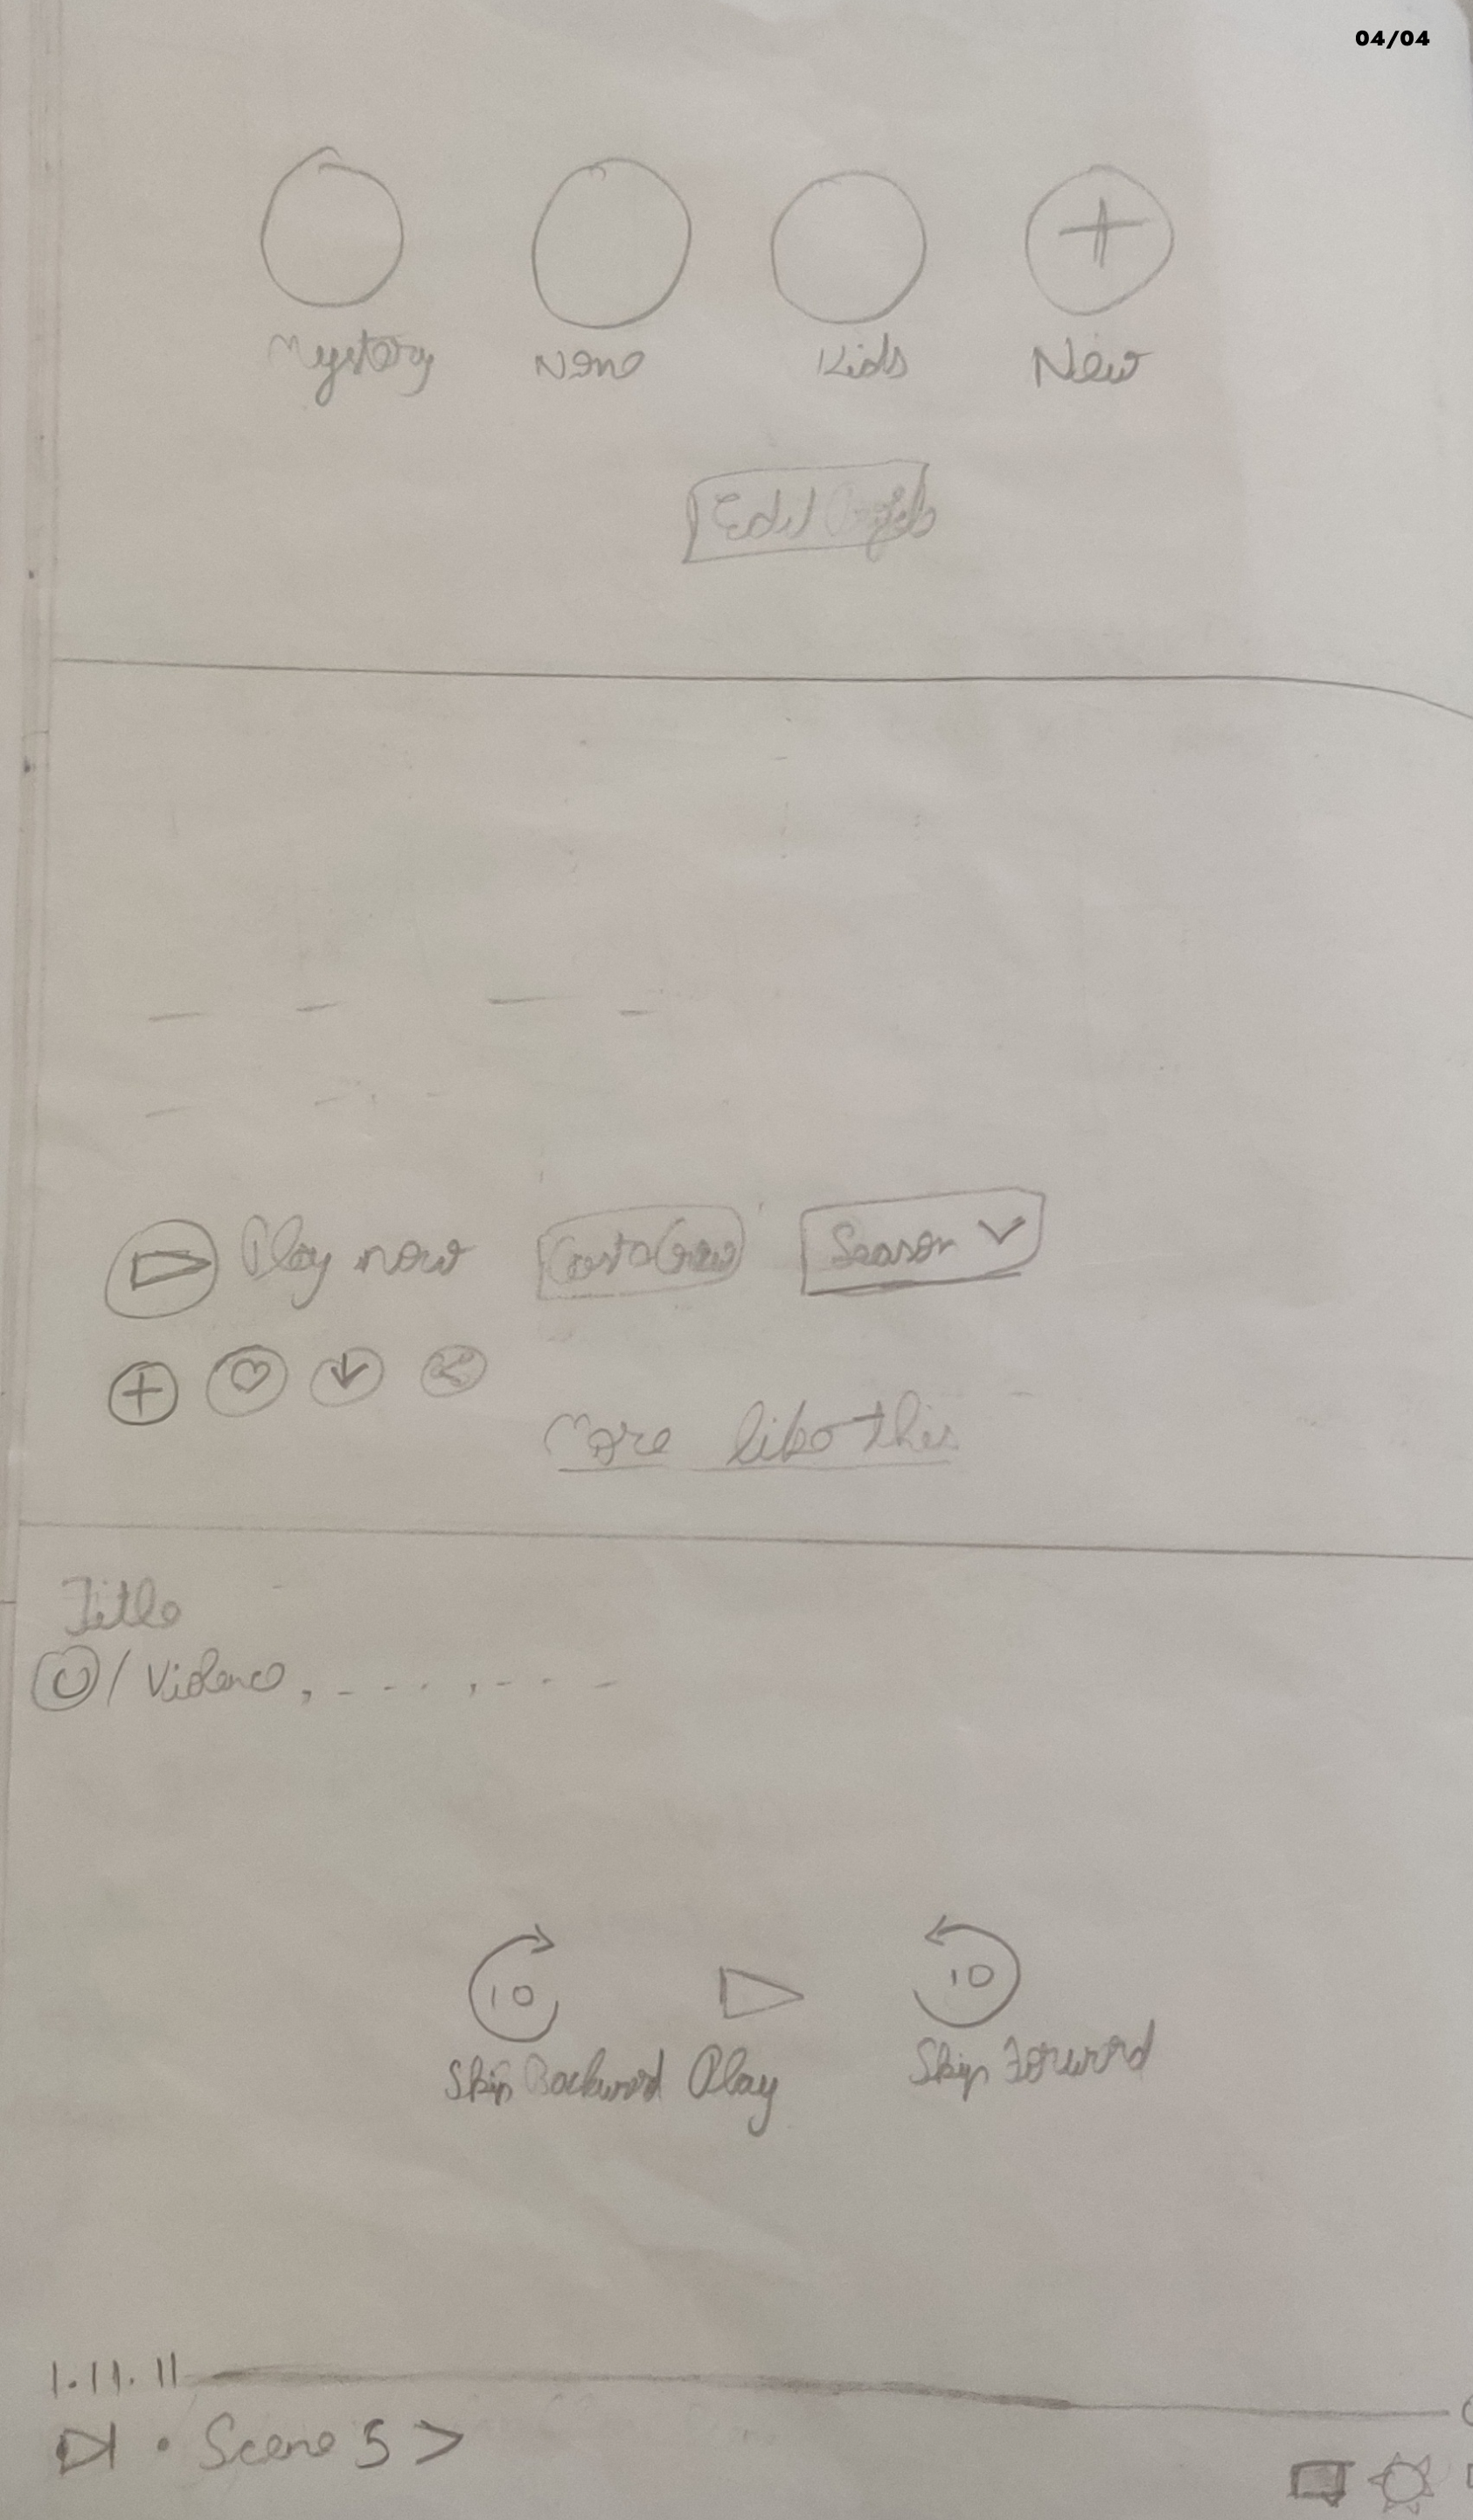 04/04
Mystery Nano Kids New
Edit Profile
Play now Cast & Crew Season
More like this
Title
U / Violence, - - - -, - - - -
10 10
Skip Backward Play Skip Forward
1.11.11
Scene 5 >